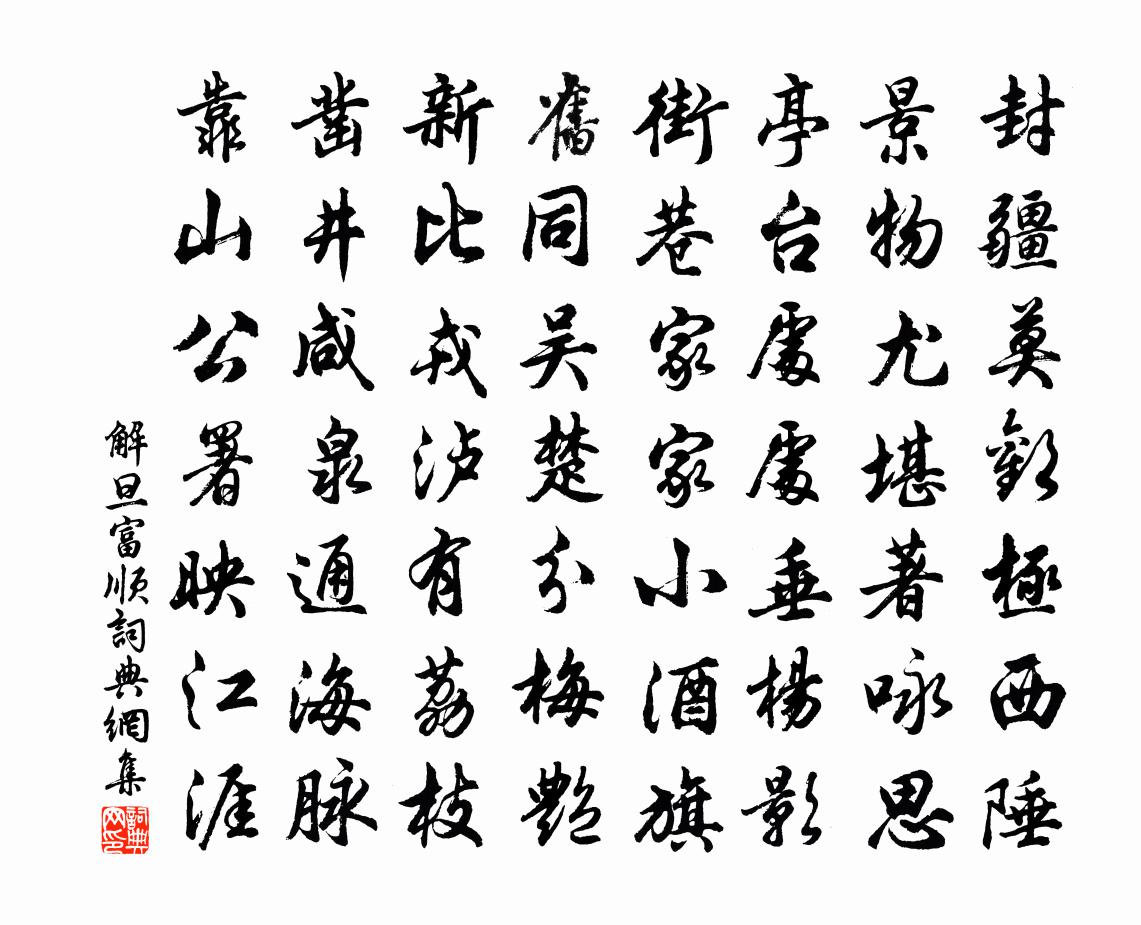 封疆莫歎極西陲
景物尤堪著咏思
亭台處處垂楊影
街巷家家小酒旗
舊同吴楚分梅艷
新比戎泸有荔枝
凿井咸泉通海脉
靠山公署映江涯
解旦富顺詞典網集
詞典网印